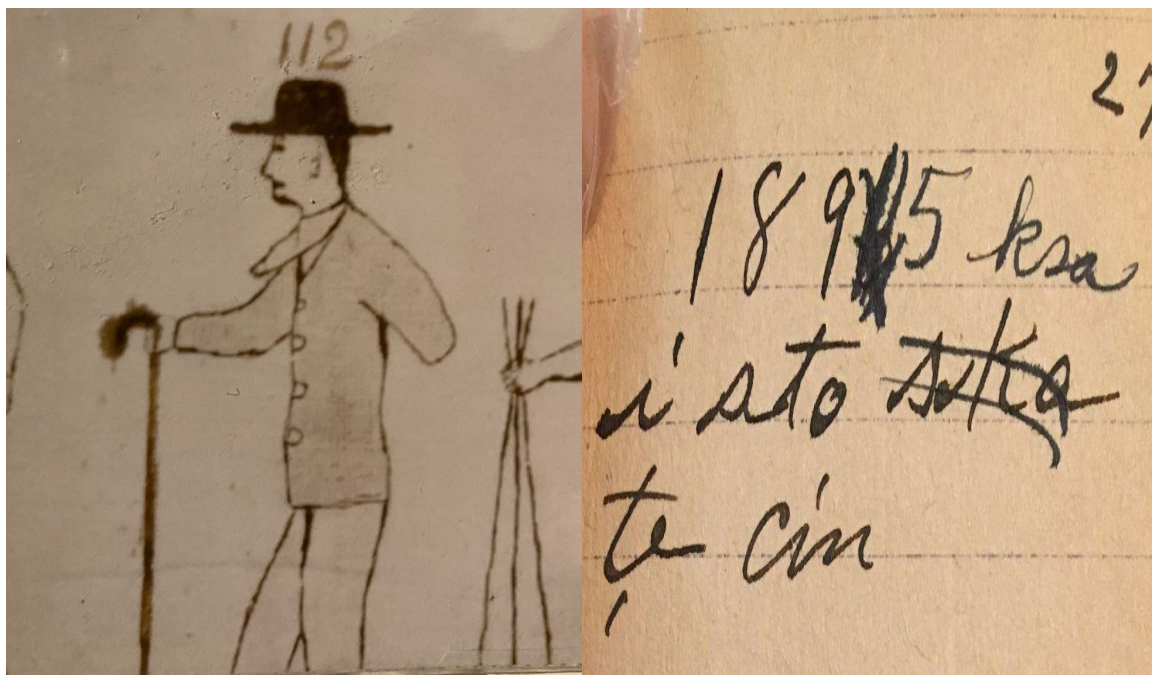 112
27
1895 ksa
i sto ska
te cin